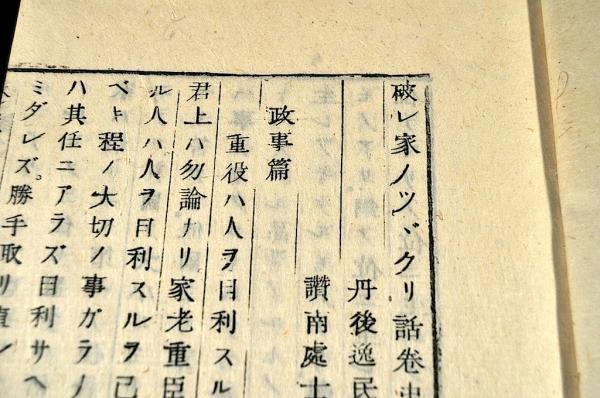 破レ家ノツヾクリ話卷中
丹後逸民
讚南處士
政事篇
重役ハ人ヲ目利スル
君上ハ勿論ナリ家老重臣
ル人ハ人ヲ目利スルヲ己
ベキ程ノ大切ノ事ガラノ
ハ其任ニアラズ目利サヘ
ミダレズ勝手取リ直シ